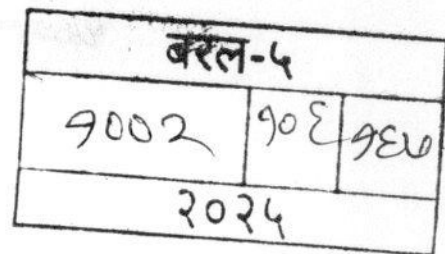 बरल-५
१००२ १०६ १६७
२०२५